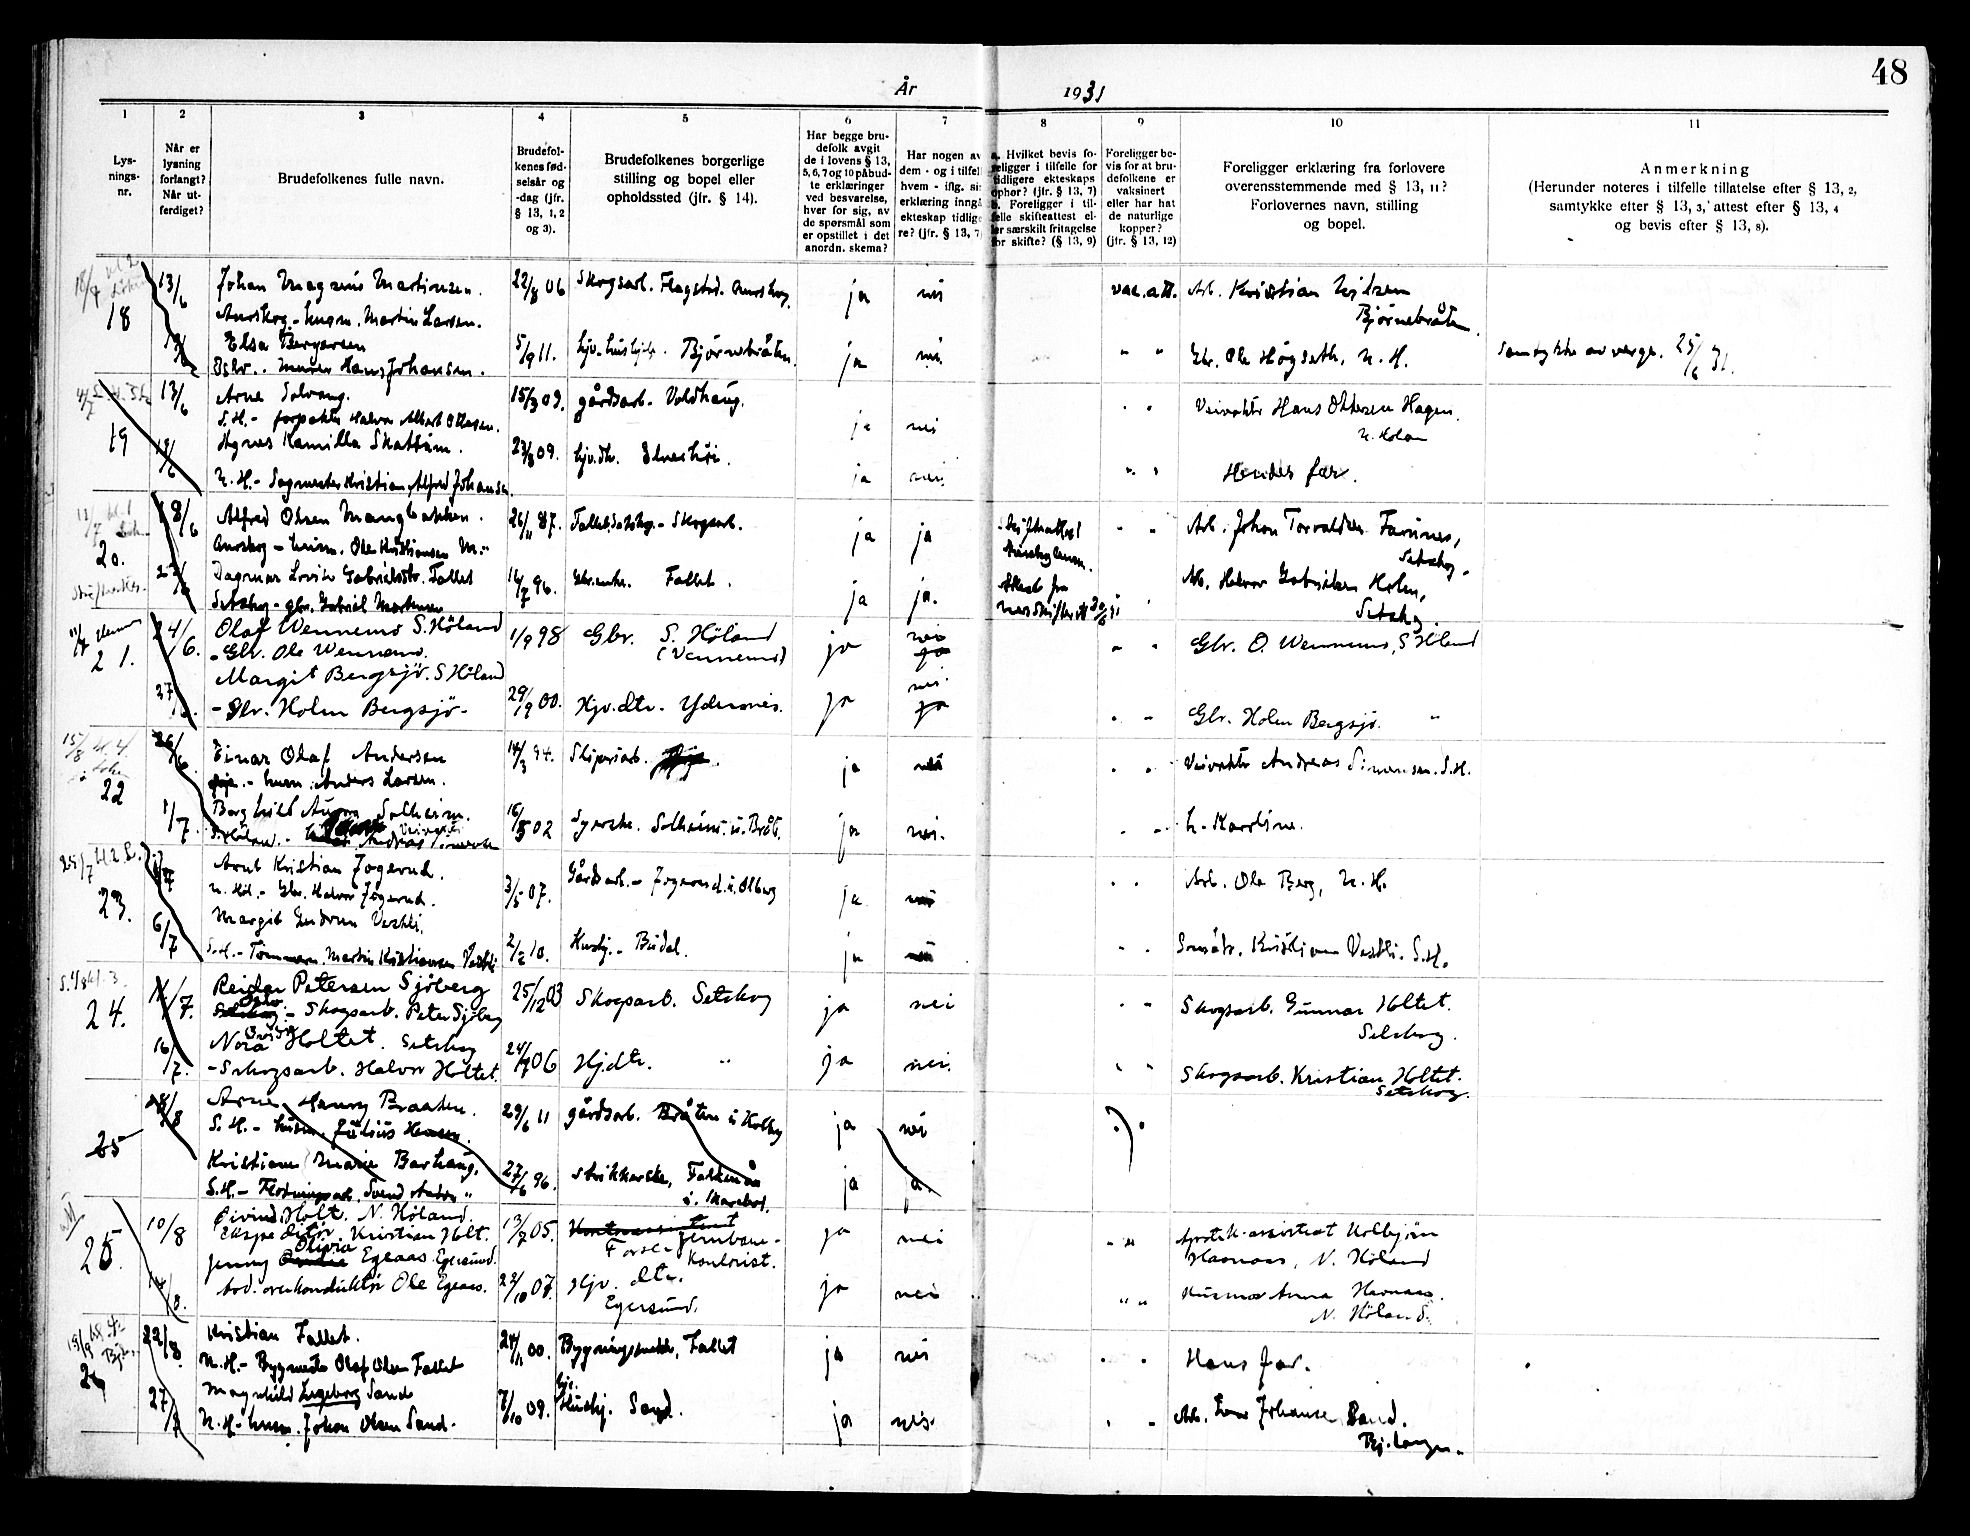 48
År 1931
1 2 3 4 5 6 7 8 9 10 11
Lys-
nings-
nr.
Når er
lysning
forlangt?
Når ut-
ferdiget?
Brudefolkenes fulle navn.
Brudefol-
kenes fød-
selsår og
-dag (jfr.
§ 13, 1, 2
og 3).
Brudefolkenes borgerlige
stilling og bopel eller
opholdssted (jfr. § 14).
Har begge bru-
defolk avgit
de i lovens § 13,
5, 6, 7 og 10 påbud-
te erklæringer
ved besvarelse,
hver for sig, av
de spørsmål som
er opstillet i det
anordn. skema?
Har nogen av
dem - og i tilfel
hvem - iflg. si
erklæring inngå
ekteskap tidlig
re? (jfr. § 13, 7
a. Hvilket bevis fo-
religger i tilfelle for
tidligere ekteskaps
ophør? (jfr. § 13, 7)
b. Foreligger i til-
felle skifteattest el-
ler særskilt fritagelse
for skifte? (§ 13, 9)
Foreligger be-
vis for at bru-
defolkene er
vaksinert
eller har hat
de naturlige
kopper?
(jfr. § 13, 12)
Foreligger erklæring fra forlovere
overensstemmende med § 13, 11?
Forlovernes navn, stilling
og bopel.
Anmerkning
(Herunder noteres i tilfelle tillatelse efter § 13, 2,
samtykke efter § 13, 3, attest efter § 13, 4
og bevis efter § 13, 8).
18 13/6 Johan Magnus Martinsen. 22/8 06 Skogsarb. Flagstad. Aurskog. ja nei vac.att. Arb. Kristian Nilsen
Aurskog - husm. Martin Larsen. Bjørnebråten
Elsa Bergersen 5/9 11. hjv. hushjelp. Bjørnebråten. ja nei. " " Gbr. Ole Høgseth, N. H. Samtykke av verge. 25/6 31.
Oslo.. murer Hans Johansen.
19 13/6 Arne Solvang. 15/3 09. gårdsarb. Voldhaug. ja nei " " Veivokter Hans Ottesen Hagen.
S.H. - forpakter Halvor Albert Ottesen. N. Høland
Agnes Kamilla Skattum. 23/8 09. hjv. dtr. ja nei. " " Hendes far.
N. H. - Sagmester Kristian Alfred Johansen.
20. 18/6 Alfred Olsen Mangbakken. 26/11 87. Fallet, Setskog - Skogsarb. ja ja " " Arb. Johan Torvaldsen Farines,
Aurskog - husm. Ole Kristiansen M." Setskog.
Dagmar Lovise Gabrielsdtr. Fallet 12/7 96. Gbr.enke. Fallet. ja ja. Arb. Halvor Gabrielsen Holm,
Setskog - gbr. Gabriel Mortensen Setskog.
21. 24/6. Olaf Wennemo S. Höland 1/9 98 Gbr. S. Höland ja nei " " Gbr. O. Wennemo, S Höland
- Gbr. Ole Wennemo. (Vennemo) ja
Margit Bergsjö. S Höland nei.
27/6. - Gbr. Holm Bergsjö - 29/9 00. Hjv. dtr. - ja ja " " Gbr. Holm Bergsjö. "
22 26/6 Einar Olaf Andersen 14/3 94. Sliperiarb. ja nei " " Veivokter Andreas Simensen. S.H.
- husm. Anders Larsen.
1/7 Borghild Aurora Solheim. 16/5 02 Syerske. Solheim u. Bråt. ja nei. " " h. Karoline.
S. Höland. Andreas Simensen
23. 1/7 Arnt Kristian Fogerud. 3/5 07. Gårdsarb. - Fogerud u. Olberg ja nei " " Arb. Ole Berg, N. H.
N. Høl. - Gbr. Halvor Fogerud.
6/7 Margit Gudrun Vestli. 2/2 10. Hushj. - ja nei " " Kristian Vestli. S.H.
S.H. - Tømmerm. Martin Kristiansen Vestli
24. 11/7. Reidar Petersen Sjöberg 25/12 03 Skogsarb. Setskog ja nei " " Skogsarb. Gunnar Holtet.
Oslo - Skogsarb. Peter Sjöberg Setskog.
16/7. Nora Holtet. Setskog 24/7 06 Hj.dtr. " ja nei. " " Skogsarb. Kristian Holtet.
- Skogsarb. Halvor Holtet. Setskog.
25 8/8 Arne Henry Braaten. 29/6 11 gårdsarb. Bråten u Kolby ja nei
S. H. - husm. Julius Hansen.
Kristiane Marie Barhaug. 27/6 96. strikkerske, ja ja.
S.H. - Fløtningsarb. Svend "
25. 10/8 Eivind Holt. N. Höland. 13/7 05. Kontorassistent ja nei " " Apotek-assistent Kolbjörn
Ekspeditör Kristian Holt. Jernbane- Hasnaas, N. Höland
Jenny Olivia Egeaas. Egersund. kontorist.
14/8. bod. overkonduktör Ole Egeaas. 22/10 07. Hjv. dtr. ja nei " " Anna Hasnaas.
Egersund. N. Höland.
26 22/8 Kristian Fallet. 24/1 00. Bygningssnekker, Fallet ja nei " " Hans far.
N. H. - Byggmester Olaf Olsen Fallet
Magnhild Ingeborg Sand 7/10 09. Hushj. Sand. ja nei. " " Arb. Johansen Sand.
27/8 N. H. - husm. Johan Olsen Sand. Bj.langen.